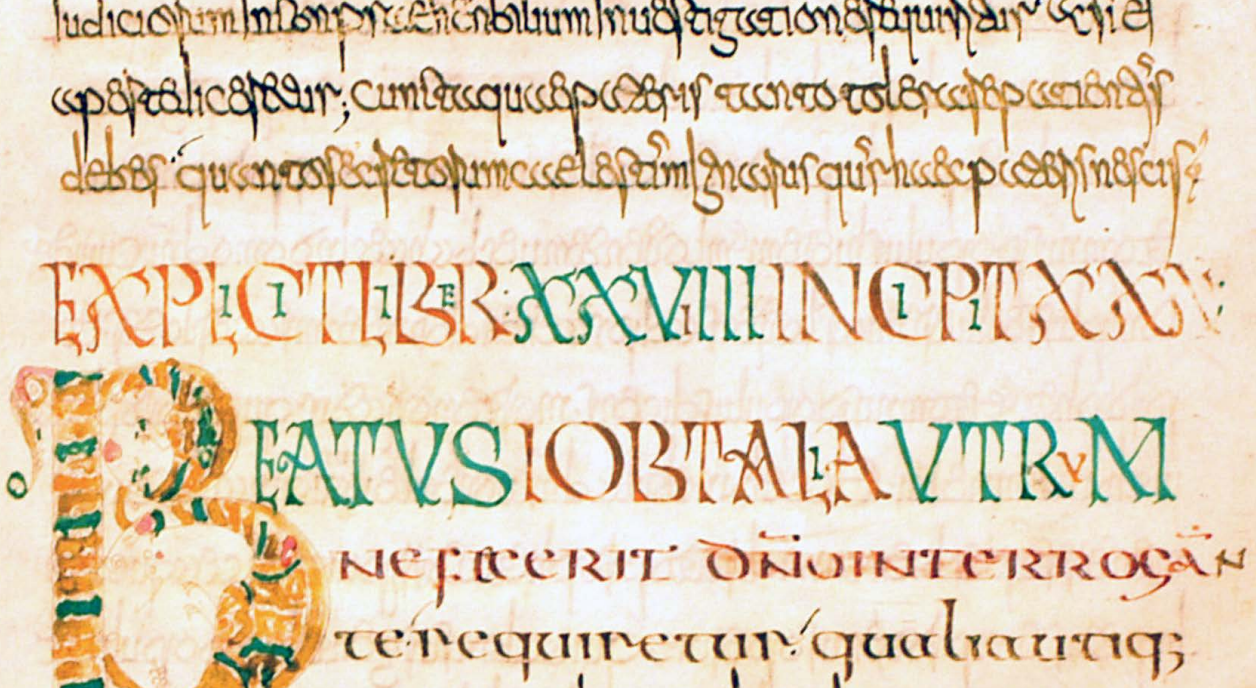 Iudiciorum incompraehensibilium
cuncta quae pateris tanto tolerare patientius
debeas quanto secretorum caelestium ignarus qur haec patearis nescis
EXPLICIT LIBER XXVIIII INCIPIT XXX
BEATVS IOB TALIA VTRVM
NE FECERIT DN̄O INTERROGAN
te requiretur qualia utiq;